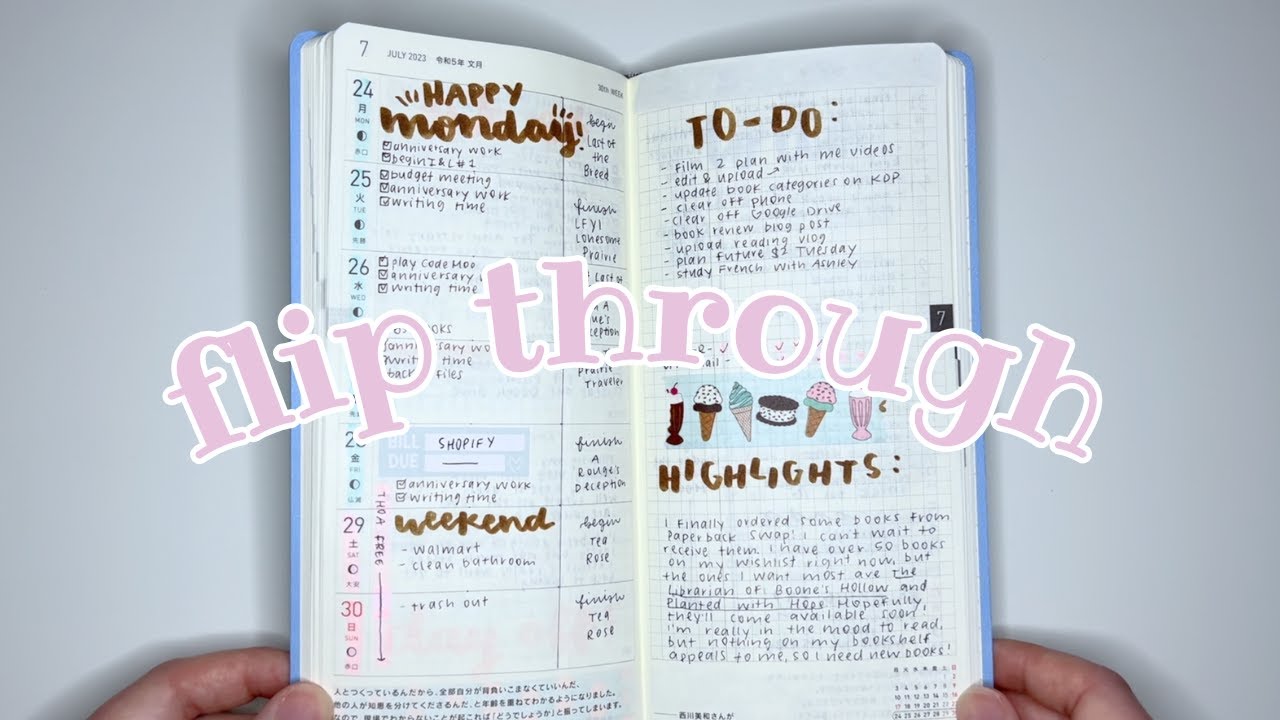 7 JULY 2023 令和5年 文月
30th WEEK
24
月
MON
赤口
HAPPY
monday!
anniversary work
begin I&L #1
begin
Last of
the
Breed
25
火
TUE
先勝
budget meeting
anniversary work
writing time
finish
LFYI
Lonesome
Prairie
26
水
WED
play Code Moo
anniversary work
writing time
Last of
A
ue's
eception
books
anniversary wo
writ time
back files
Prairie
Traveler
金
FRI
仏滅
BILL
DUE
SHOPIFY
anniversary work
writing time
finish
A
Rouge's
Deception
29
土
SAT
大安
THOA FREE
weekend
- walmart
- clean bathroom
begin
TEA
ROSE
30
日
SUN
赤口
- trash out
finish
TEA
ROSE
人とつくっているんだから、全部自分が背負いこまなくていいんだ、
他の人が知恵を分けてくださるんだ、と年齢を重ねてわかるようになりました。
なので、現場でわからないことが起これば「どうでしょうか」と振ってしまいます。
TO-DO:
- film 2 plan with me videos
- edit & upload
- update book categories on KDP
- clear off phone
- clear off Google Drive
- book review blog post
- upload reading vlog
- plan future $2 Tuesday
- study French with Ashley
7
flip through
HIGHLIGHTS:
I finally ordered some books from
Paperback Swap! I can't wait to
receive them. I have over 50 books
on my wishlist right now, but
the ones I want most are The
Librarian of Boone's Hollow and
Planted with Hope. Hopefully,
they'll come available soon!
I'm really in the mood to read,
but nothing on my bookshelf
appeals to me, so I need new books!
月 火 水 木 金 土 日
1 2
3 4 5 6 7 8 9
10 11 12 13 14 15 16
17 18 19 20 21 22 23
24 25 26 27 28 29 30
——西川美和さんが